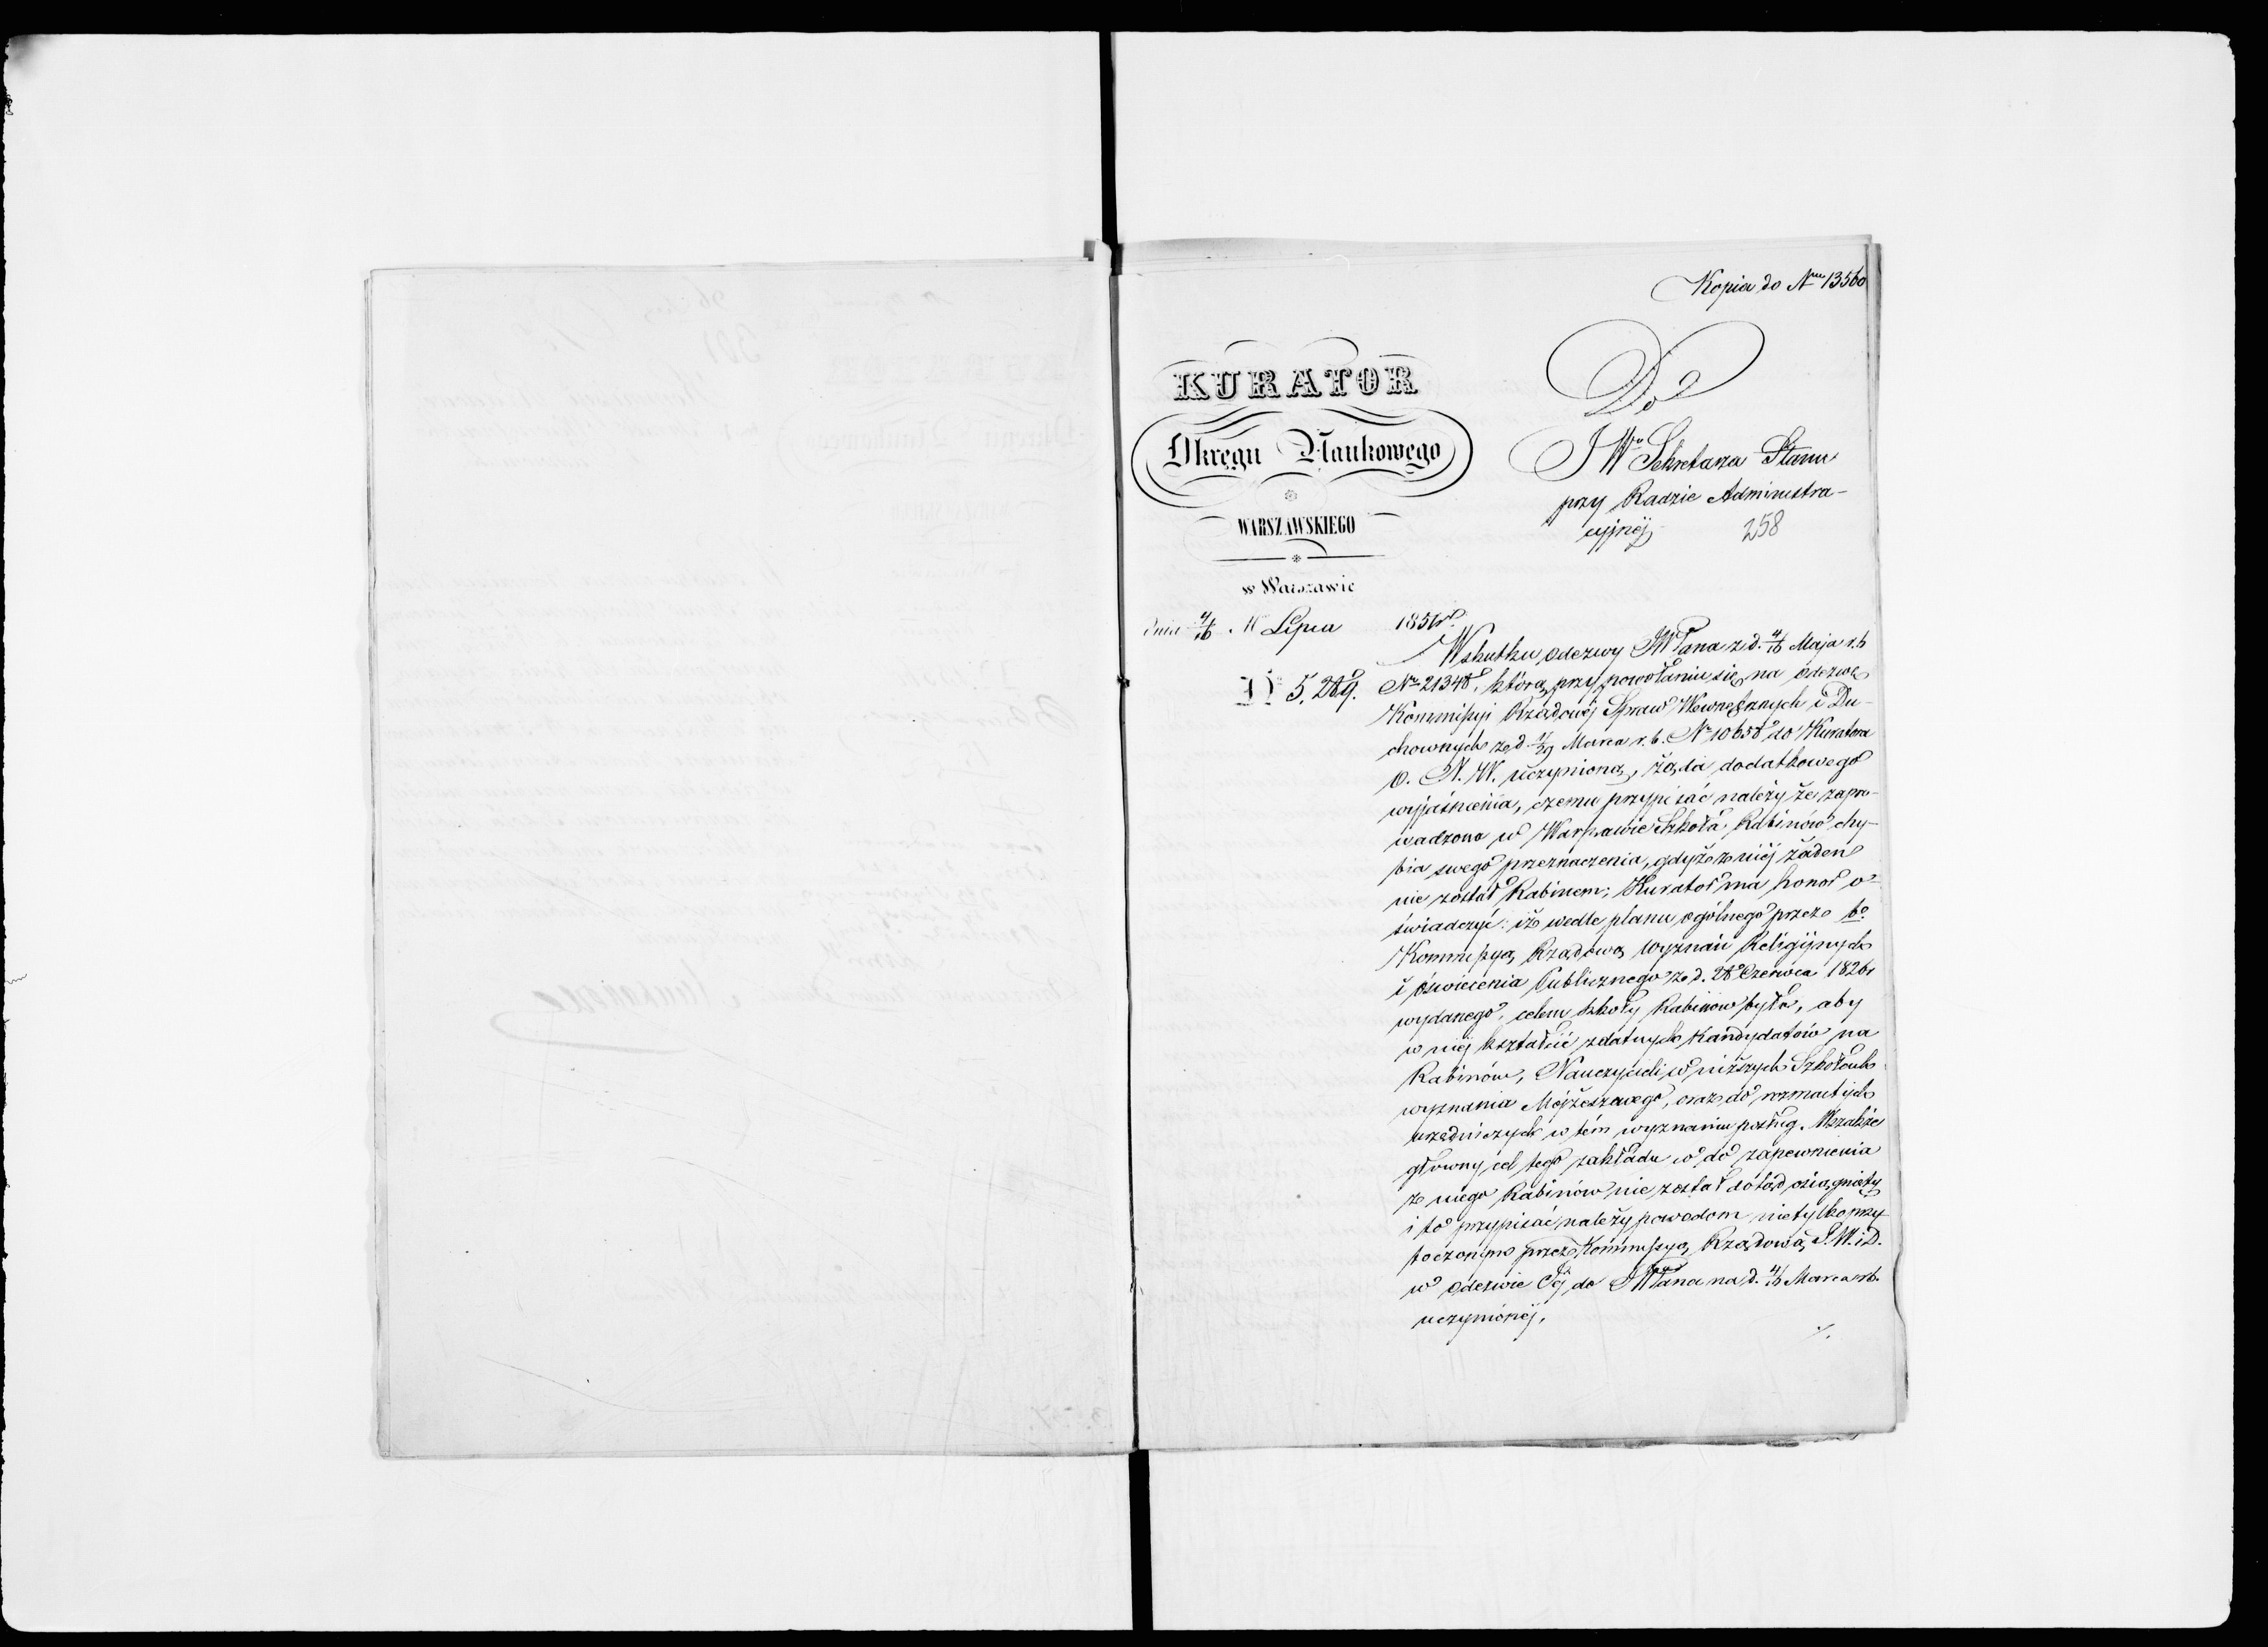 Kopia do Nru 13560
KURATOR
Okręgu Naukowego
WARSZAWSKIEGO
w Warszawie
dnia 4/16 Lipca 185
N 5,289.
Do
JWo Sekretarza Stanu
przy Radzie Administra-
cyjnéj
258
Wskutku odezwy JWPana z d. 4/16 Maja r.b
No 21348, którą przy powołaniu się na odezwę
Kommissyi Rządowéj Spraw Wewnętrznych i Du-
chownych z d. 17/29 Marca r. b. No 10658 do Kuratora
O. N. W. uczynioną, żąda dodatkowego
wyjaśnienia, czemu przypisać należy że zapro-
wadzona w Warszawie Szkoła Rabinów chy-
bia swego przeznaczenia, gdyż z niéj żaden
nie został Rabinem; Kurator ma honor o-
świadczyć: iż wedle planu ogólnego przez b.
Kommissyą Rządową Wyznań Religijnych
i Oświecenia Publicznego z d. 28 Czerwca 1826
wydanego, celem Szkoły Rabinów było, aby
w niéj kształcić zdatnych Kandydatów na
Rabinów, Nauczycieli w niższych Szkołach
wyznania Mojżeszowego, oraz do rozmaitych
urzędniczych w tém wyznaniu posług. Wszakże
główny cel tego zakładu co do zapewnienia
z niego Rabinów nie został dotąd osiągnięty
i to przypisać należy powodom nietylko przy
toczonym przez Kommissyą Rządową S.W.i D.
w odezwie Jéj do JWPana na d. 4/16 Marca rb.
uczynionéj,